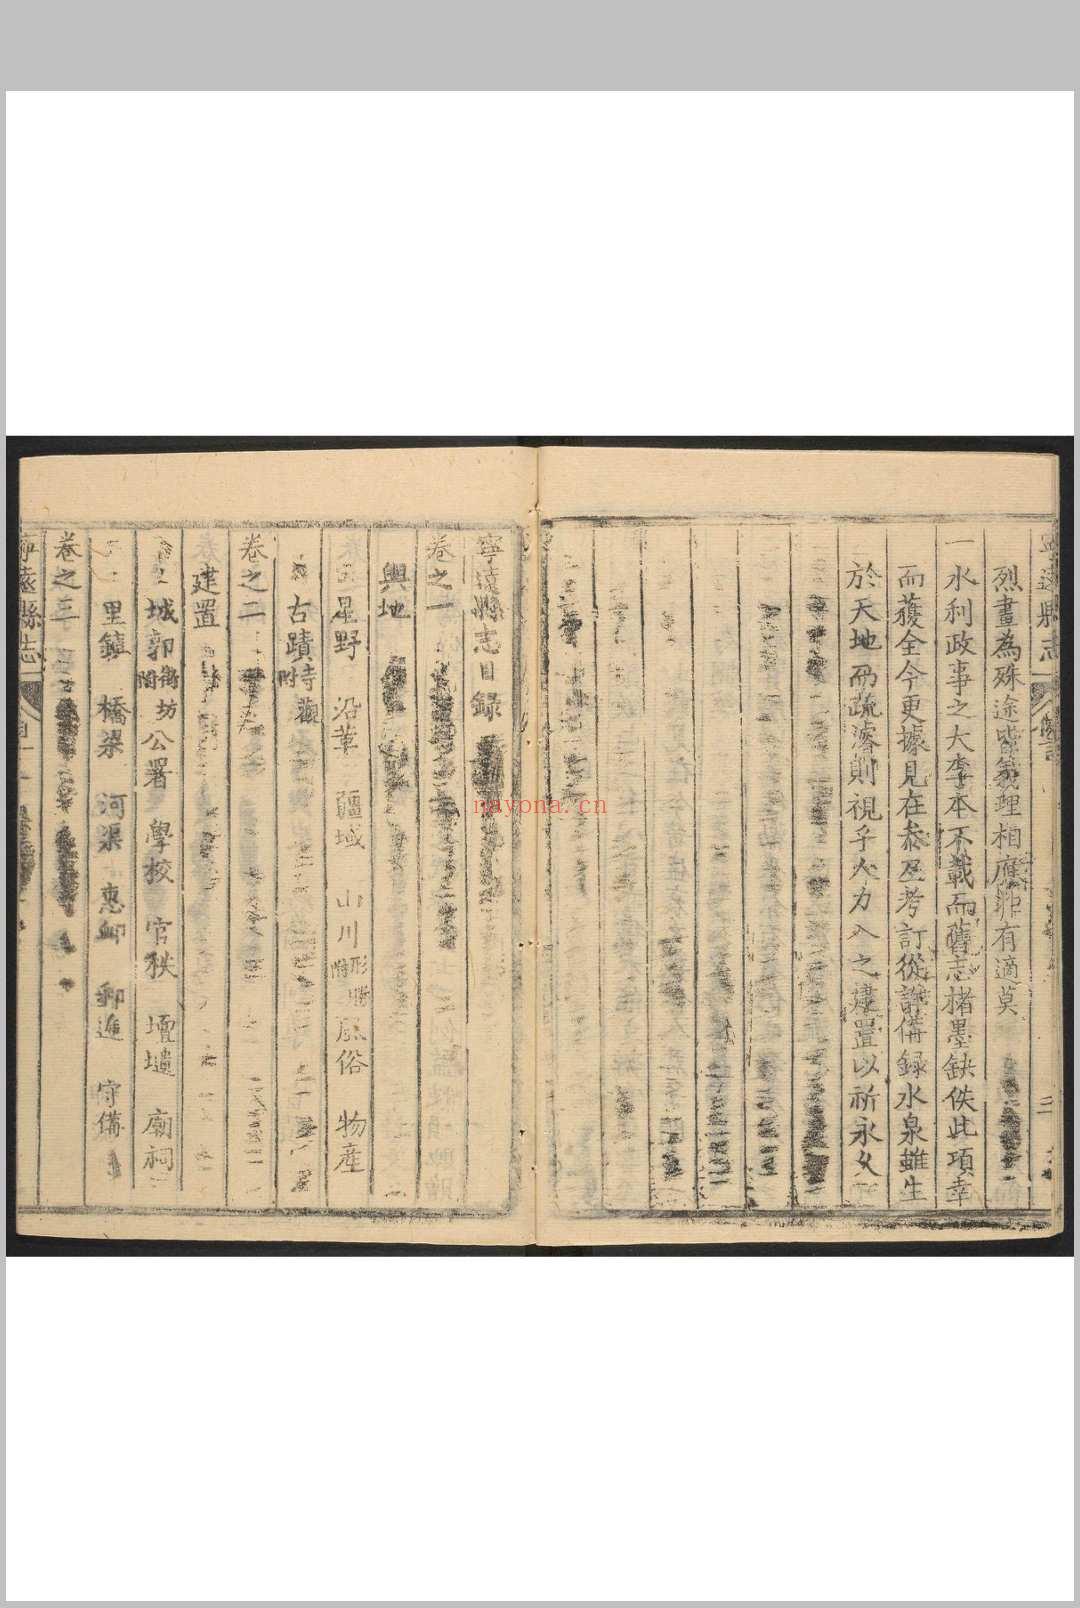 烈畫為殊途皆義理相應非有適莫
一水利政事之大李本不載而舊志楮墨缺佚此項幸
而獲全今更據見在叅及考訂從詳備録水泉雖生
於天地而疏濬則視乎人力入之建置以祈永久
寧遠縣志目録
卷之一
輿地
星野 沿革 疆域 山川形勝附 風俗 物産
古蹟特觀附
卷之二
建置
城郭街坊附 公署 學校 官秩 壇壝 廟祠
里鎮 橋梁 河渠 惠卹 郵遞 守備
卷之三
寧遠縣志
naypna.cn